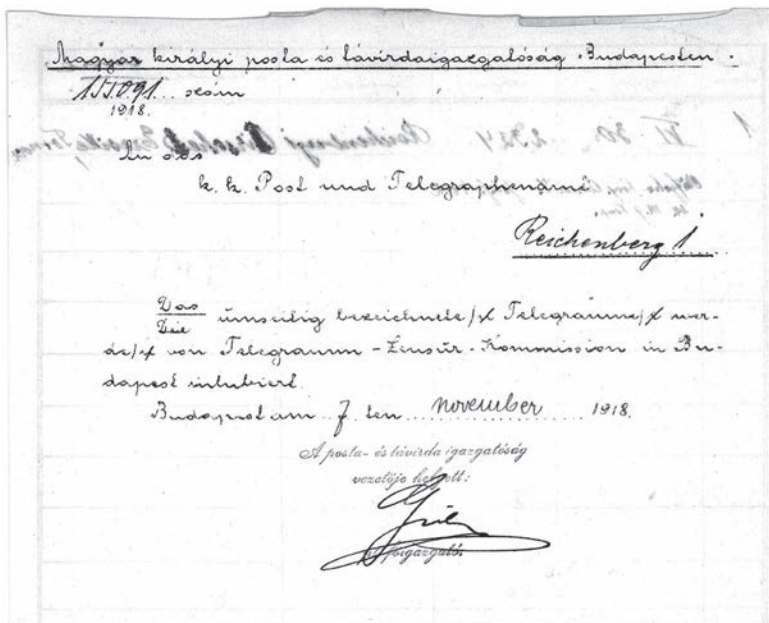 Magyar királyi posta és távirdaigazgatóság Budapesten.
155.091. szám
1918.
An das
k. k. Post und Telegraphenamt
Reichenberg 1
Das
Die umseitig bezeichnete/x Telegramme/x wer-
de/x von Telegramm-Zensur-Kommission in Bu-
dapest inhibiert.
Budapest am 7. ten november 1918.
A posta- és távirda igazgatóság
vezetője helyett:
főigazgató.